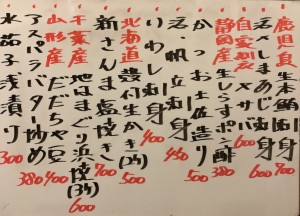 鹿児島 生本鮪刺身 900
活〆しまあじ刺身 600
自家製〆サバ 600
静岡産 生しらすポン酢 380
かつお土佐造り 500
活・帆立刺身 450
いわし刺身 400
北海道 殻付生かき(2ケ) 500
新さんま塩焼き 400
千葉産 地はまぐり浜焼(3ケ) 600
山形産 だだちゃ豆 400
アスパラバター炒め 380
水茄子浅漬り 300